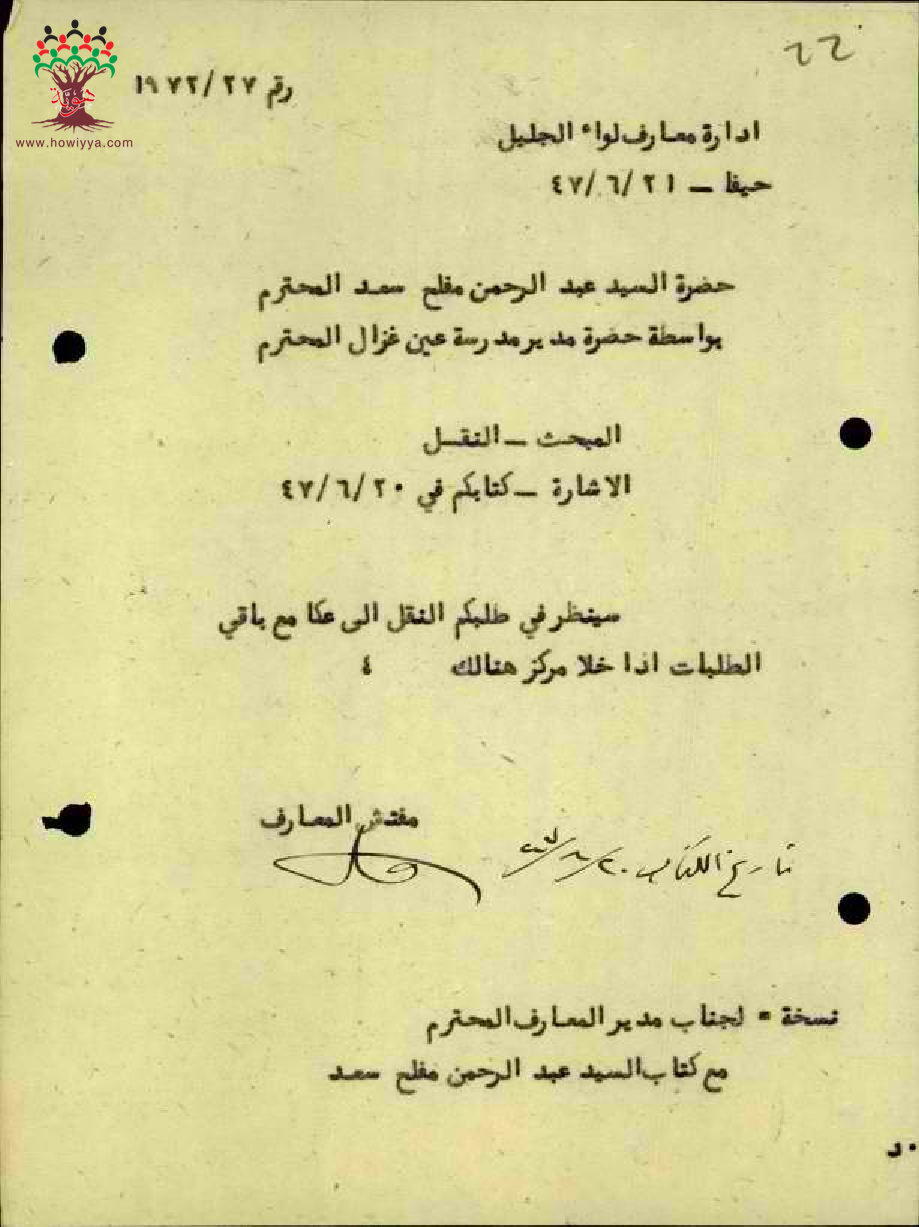 ٢٢
www.howiyya.com
رقم ١٩٧٢/٢٧
ادارة معارف لواء الجليل
حيفا – ٤٧/٦/٢١
حضرة السيد عبد الرحمن مفلح سعد المحترم
بواسطة حضرة مدير مدرسة عين غزال المحترم
المبحث – النقل
الاشارة – كتابكم في ٤٧/٦/٢٠
سينظر في طلبكم النقل الى عكا مع باقي
الطلبات اذا خلا مركز هنالك ٤
مفتش المعارف
تاريخ الكتاب ٢٠
نسخة = لجناب مدير المعارف المحترم
مع كتاب السيد عبد الرحمن مفلح سعد
د٠